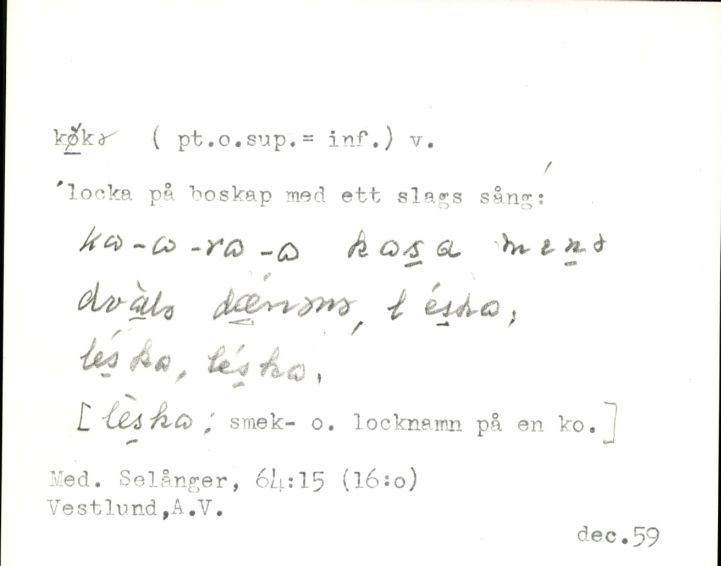 kø̀kɐ ( pt.o.sup.= inf.) v.
'locka på boskap med ett slags sång:'
kɷ-ɷ-rɷ-ɷ kɷsa
dvàlɷ
léskɷ, léskɷ,
[lèskɷ; smek- o. locknamn på en ko.]
Med. Selånger, 64:15 (16:o)
Vestlund,A.V.
dec.59